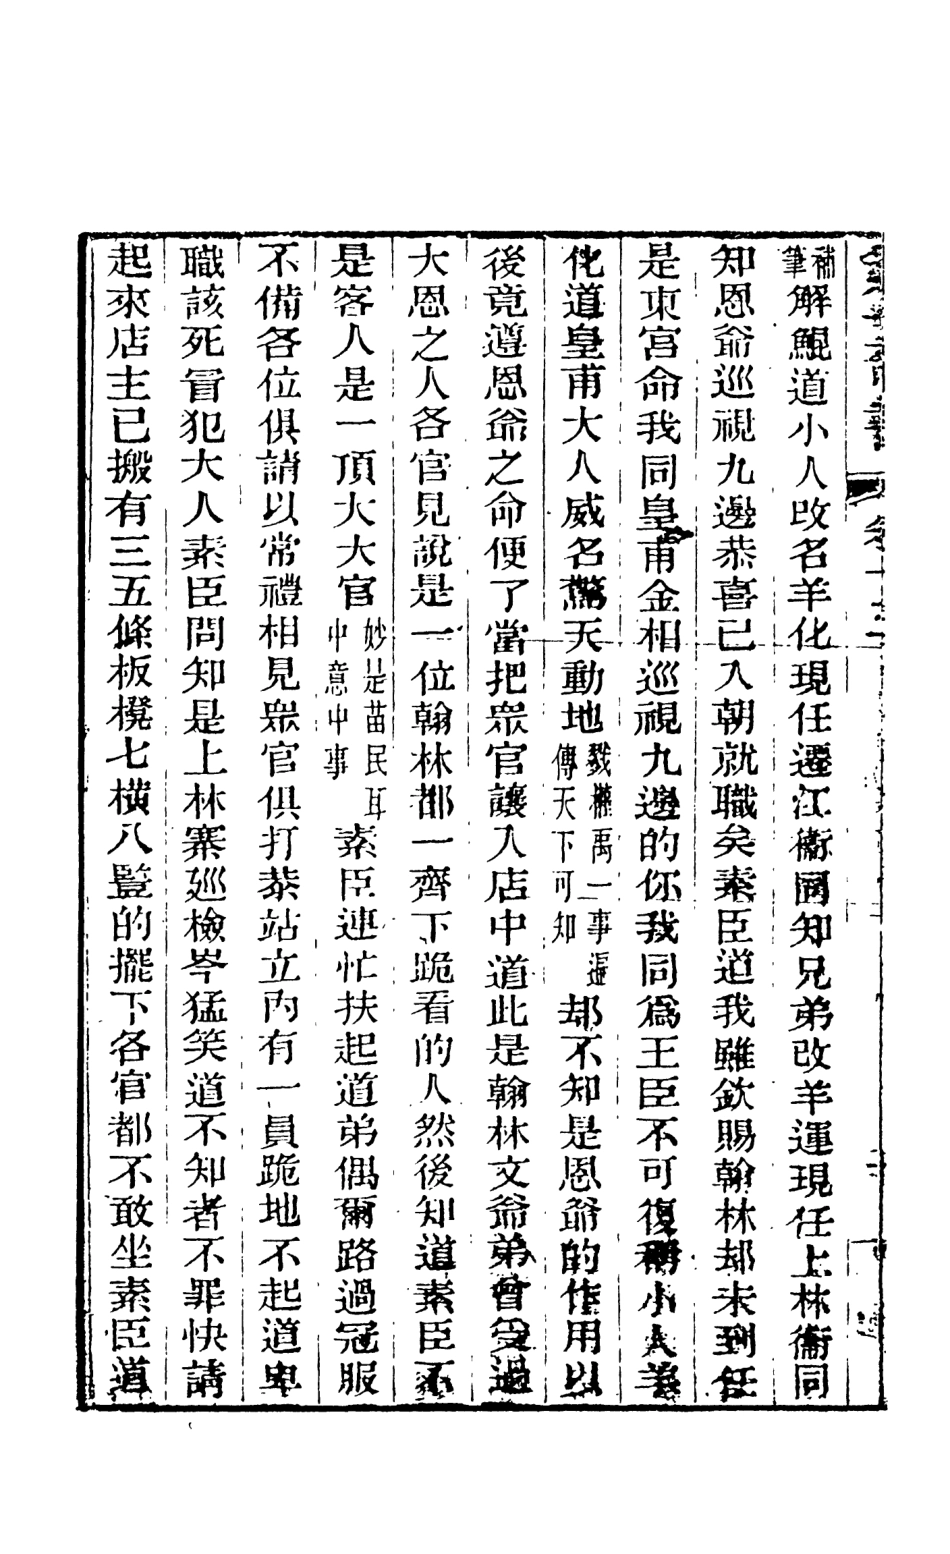 補筆解鯤道小人改名羊化現任遷江衞同知兄弟改羊運現任上林衞同
知恩爺巡視九邊恭喜已入朝就職矣素臣道我雖欽賜翰林却未到任
是東宮命我同皇甫金相巡視九邊的你我同爲王臣不可復稱小人羊
化道皇甫大人威名驚天動地戮權禹一事遍傳天下可知却不知是恩爺的作用以
後竟遵恩爺之命便了當把眾官讓入店中道此是翰林文爺弟曾受過
大恩之人各官見說是一位翰林都一齊下跪看的人然後知道素臣不
是客人是一頂大大官妙是苗民耳中意中事素臣連忙扶起道弟偶爾路過冠服
不備各位俱請以常禮相見眾官俱打恭站立內有一員跪地不起道卑
職該死冒犯大人素臣問知是上林寨廵檢岑猛笑道不知者不罪快請
起來店主已搬有三五條板櫈七橫八豎的擺下各官都不敢坐素臣道